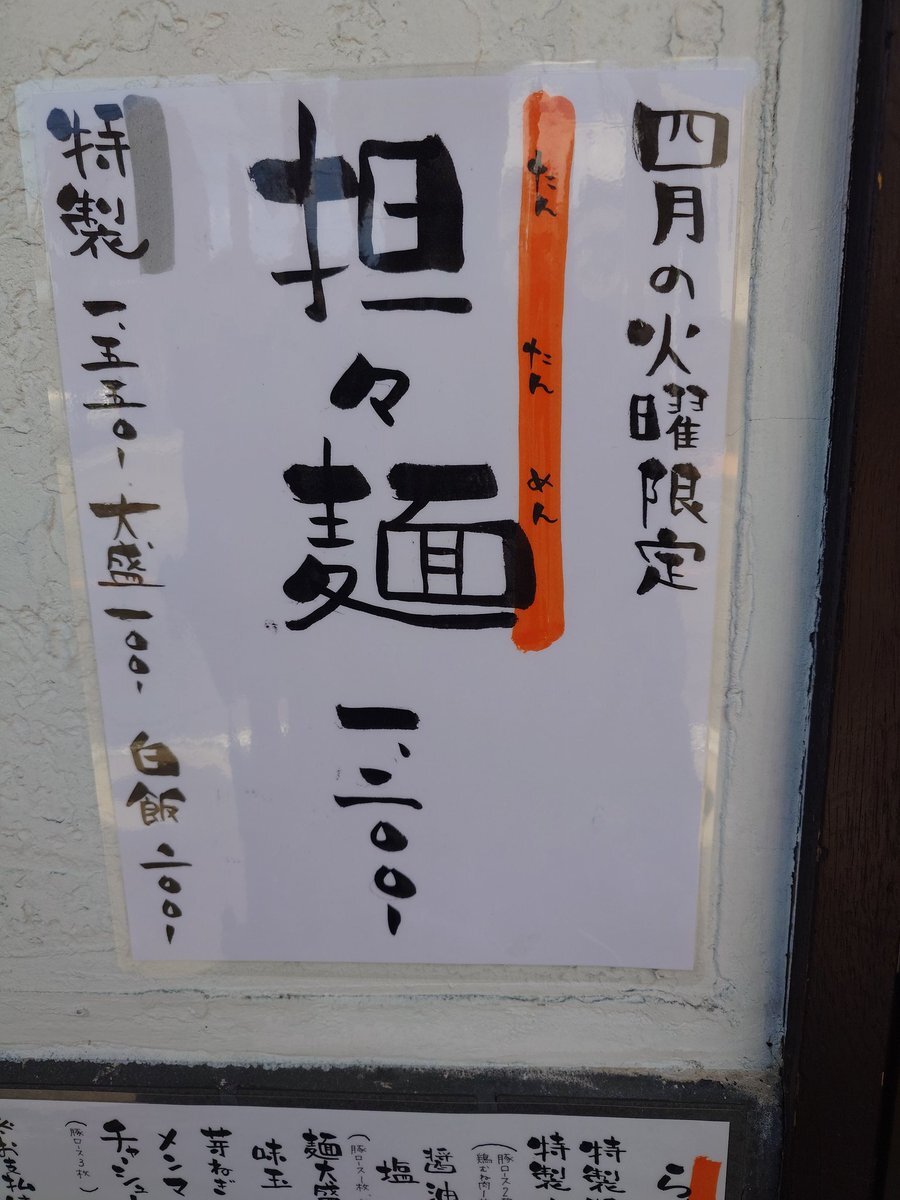 四月の火曜限定
たん たん めん
担々麺 一、二〇〇-
特製 一、五五〇- 大盛 一〇〇- 白飯 二〇〇-
ら
特製
特製
(豚ロース2
鶏むね肉
醤油
塩
(豚ロース1枚
麺大盛
味玉
芽ねぎ
メンマ
チャーシュー
(豚ロース3枚)
お支払は